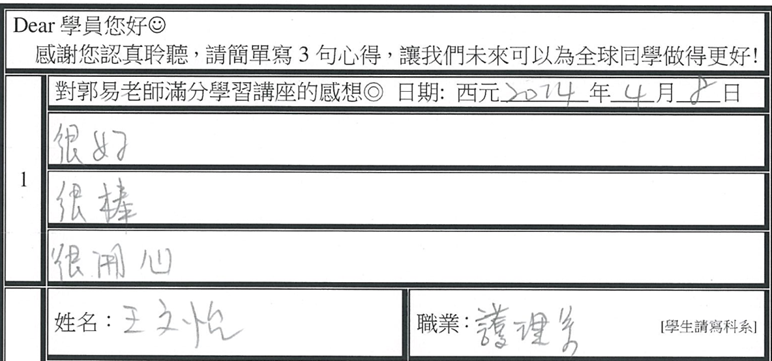 Dear 學員您好☺
感謝您認真聆聽，請簡單寫 3 句心得，讓我們未來可以為全球同學做得更好!
1
對郭易老師滿分學習講座的感想◎ 日期: 西元 2014 年 4 月 8 日
很好
很棒
很用心
姓名：王文怡 職業：護理系 [學生請寫科系]